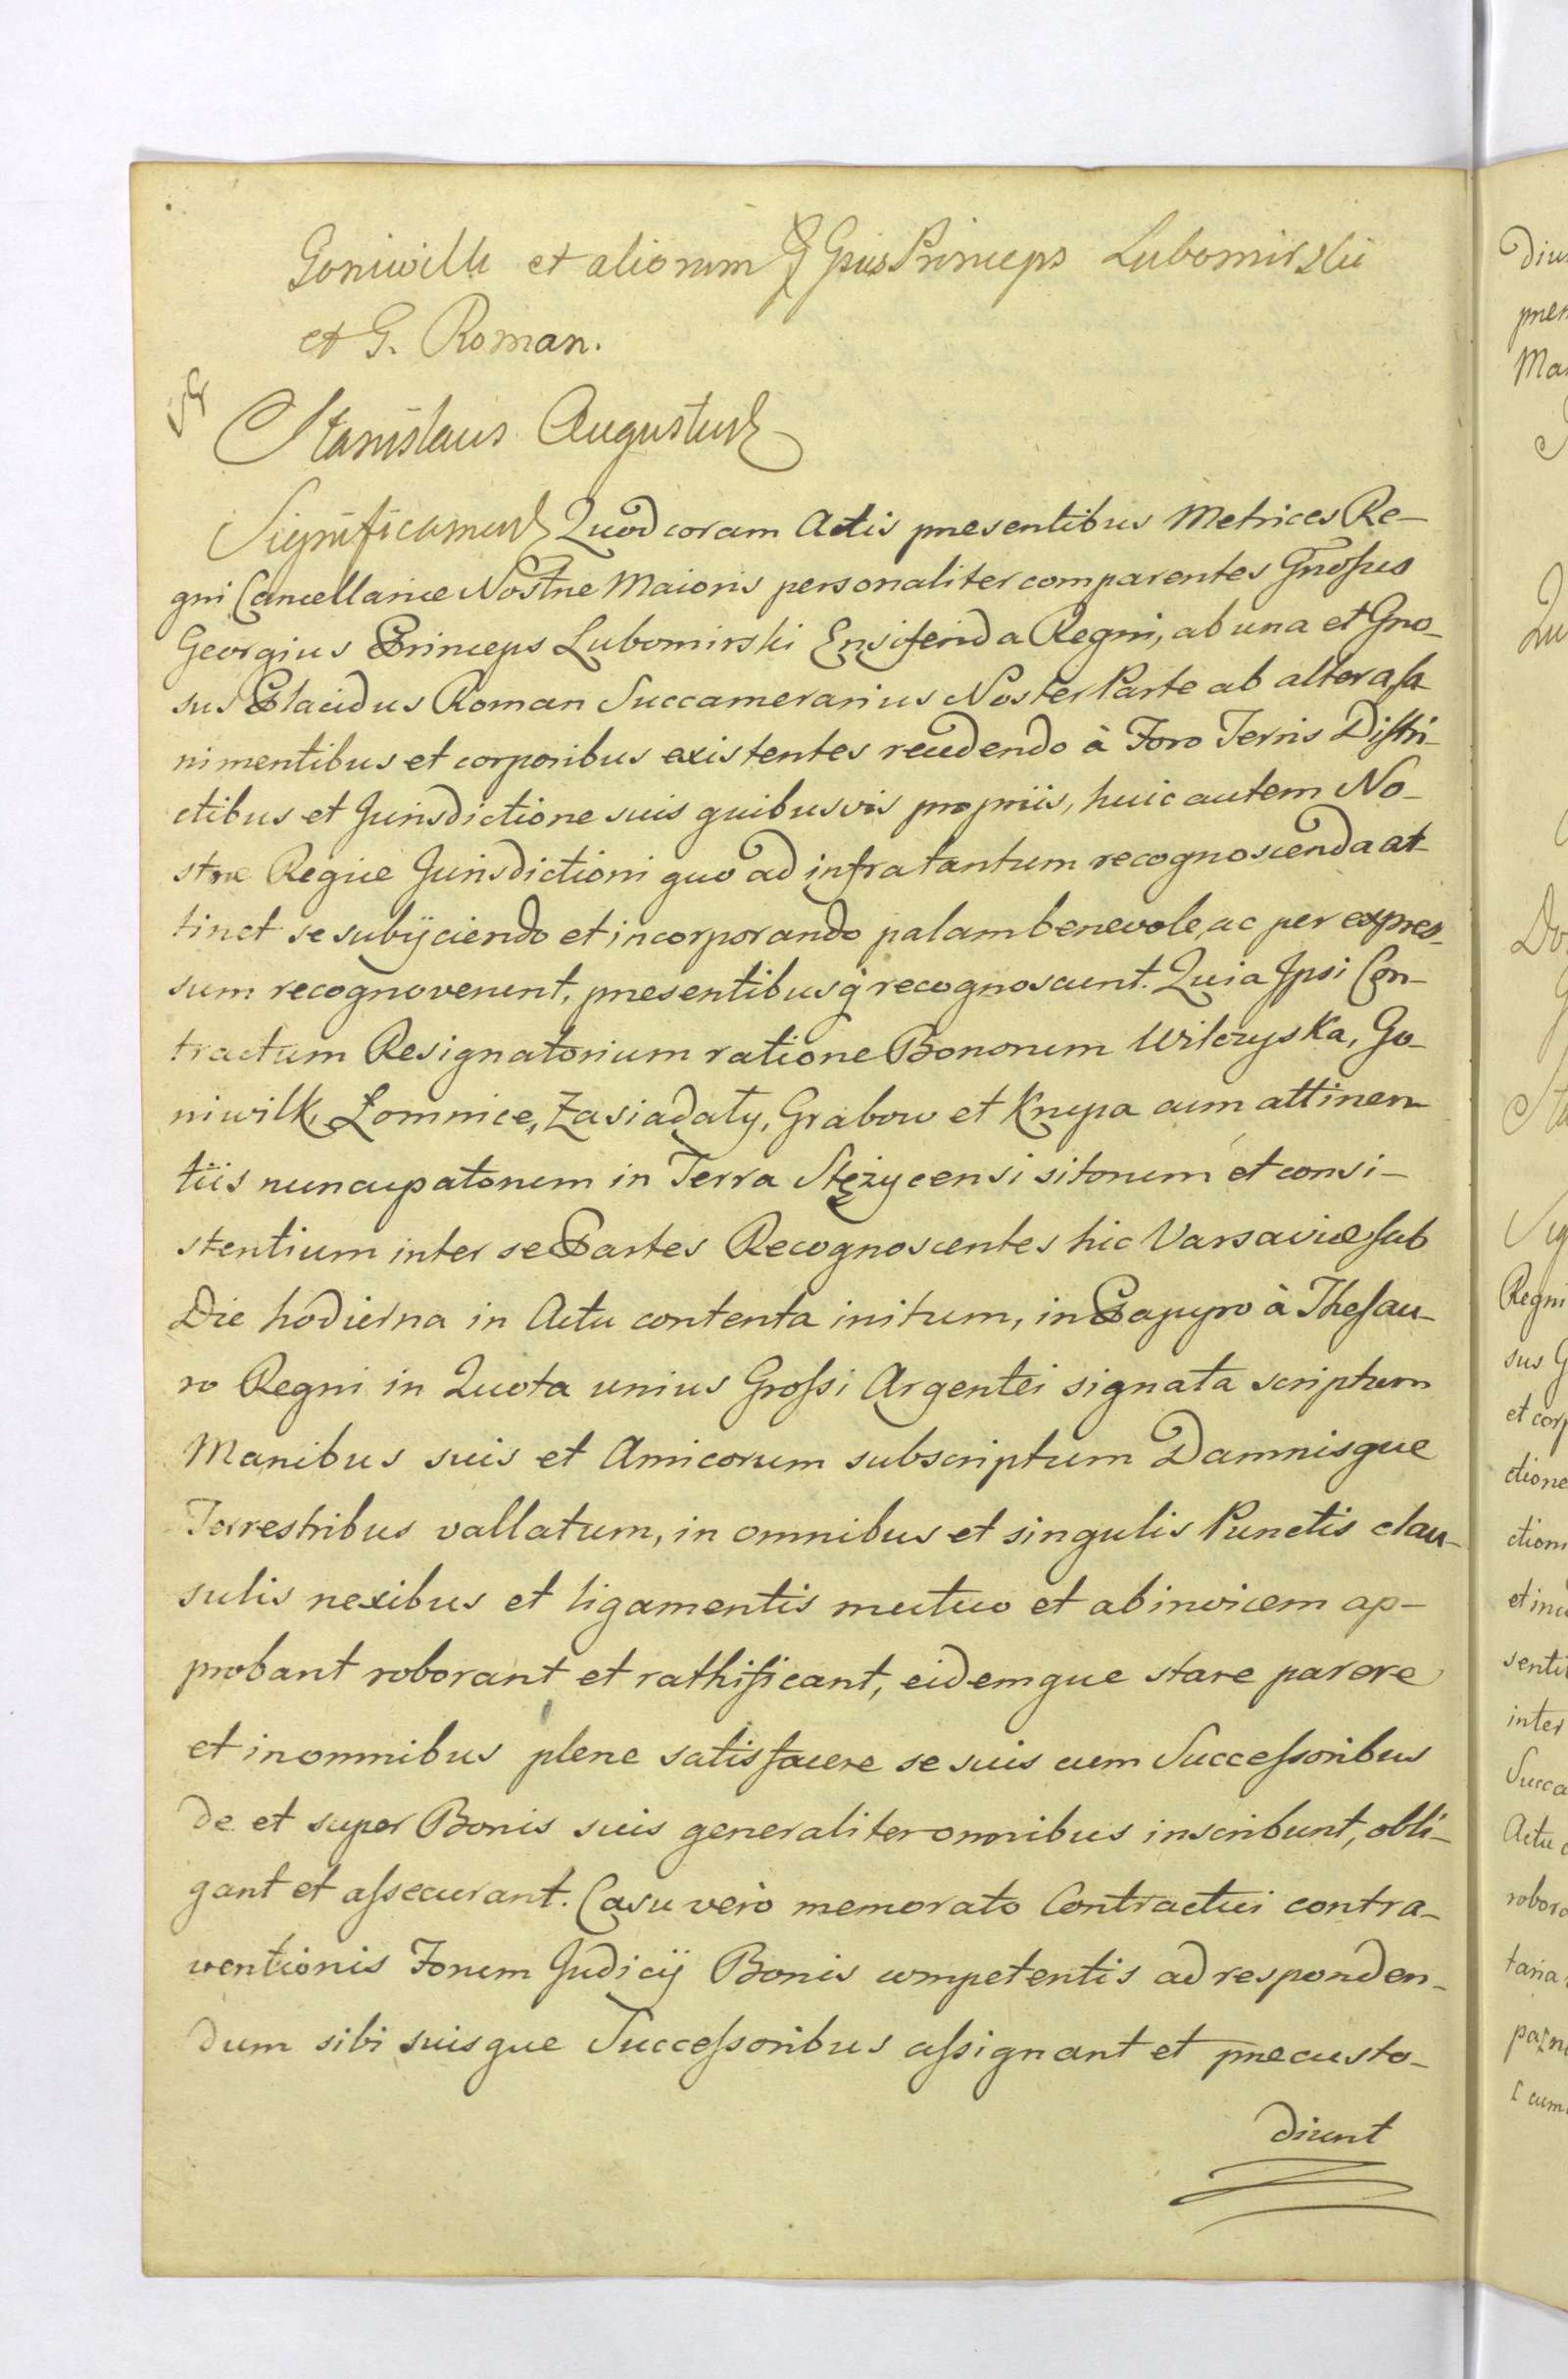 Goniwilk et aliorum Gsus Princeps Lubomirski
et G. Roman.
Stanislaus Augustus
Significamus Quod coram Actis præsentibus Metrices Re-
gni Cancellariæ Nostræ Maioris personaliter comparentes Gnosus
Georgius Princeps Lubomirski Ensiferida Regni, ab una et Gno-
sus Placidus Roman Succamerarius Noster Parte ab altera sa-
ni mentibus et corporibus existentes recedendo à Foro Terris Distri-
ctibus et Jurisdictione suis quibusvis propriis, huic autem No-
stræ Regiæ Jurisdictioni quo ad infra tantum recognoscenda at-
tinet se subijciendo et incorporando palam benevole, ac per expres-
sum recognoverunt, præsentibusq recognoscunt. Quia Ipsi Con-
tractum Resignatorium ratione Bonorum Wilczyska, Go-
niwilk, Łomnice, Zasiadały, Grabow et Knepa cum attinen-
tiis nuncupatorum in Terra Stężycensi sitorum et consi-
stentium inter se Partes Recognoscentes hic Varsaviæ sub
Die hodierna in Actu contenta initum, in Papyro à Thesau-
ro Regni in Quota unius Grossi Argentei signata scriptum
Manibus suis et Amicorum subscriptum Damnisque
Terrestribus vallatum, in omnibus et singulis Punctis clau-
sulis nexibus et ligamentis mutuo et abinvicem ap-
probant roborant et rathificant, eidemque stare parere
et in omnibus plene satisfacere se suis cum Successoribus
de et super Bonis suis generaliter omnibus inscribunt, obli-
gant et assecurant. Casu verò memorato Contractui contra-
ventionis Forum Judicij Bonis competentis ad responden-
dum sibi suisque Successoribus assignant et præcusto-
diunt